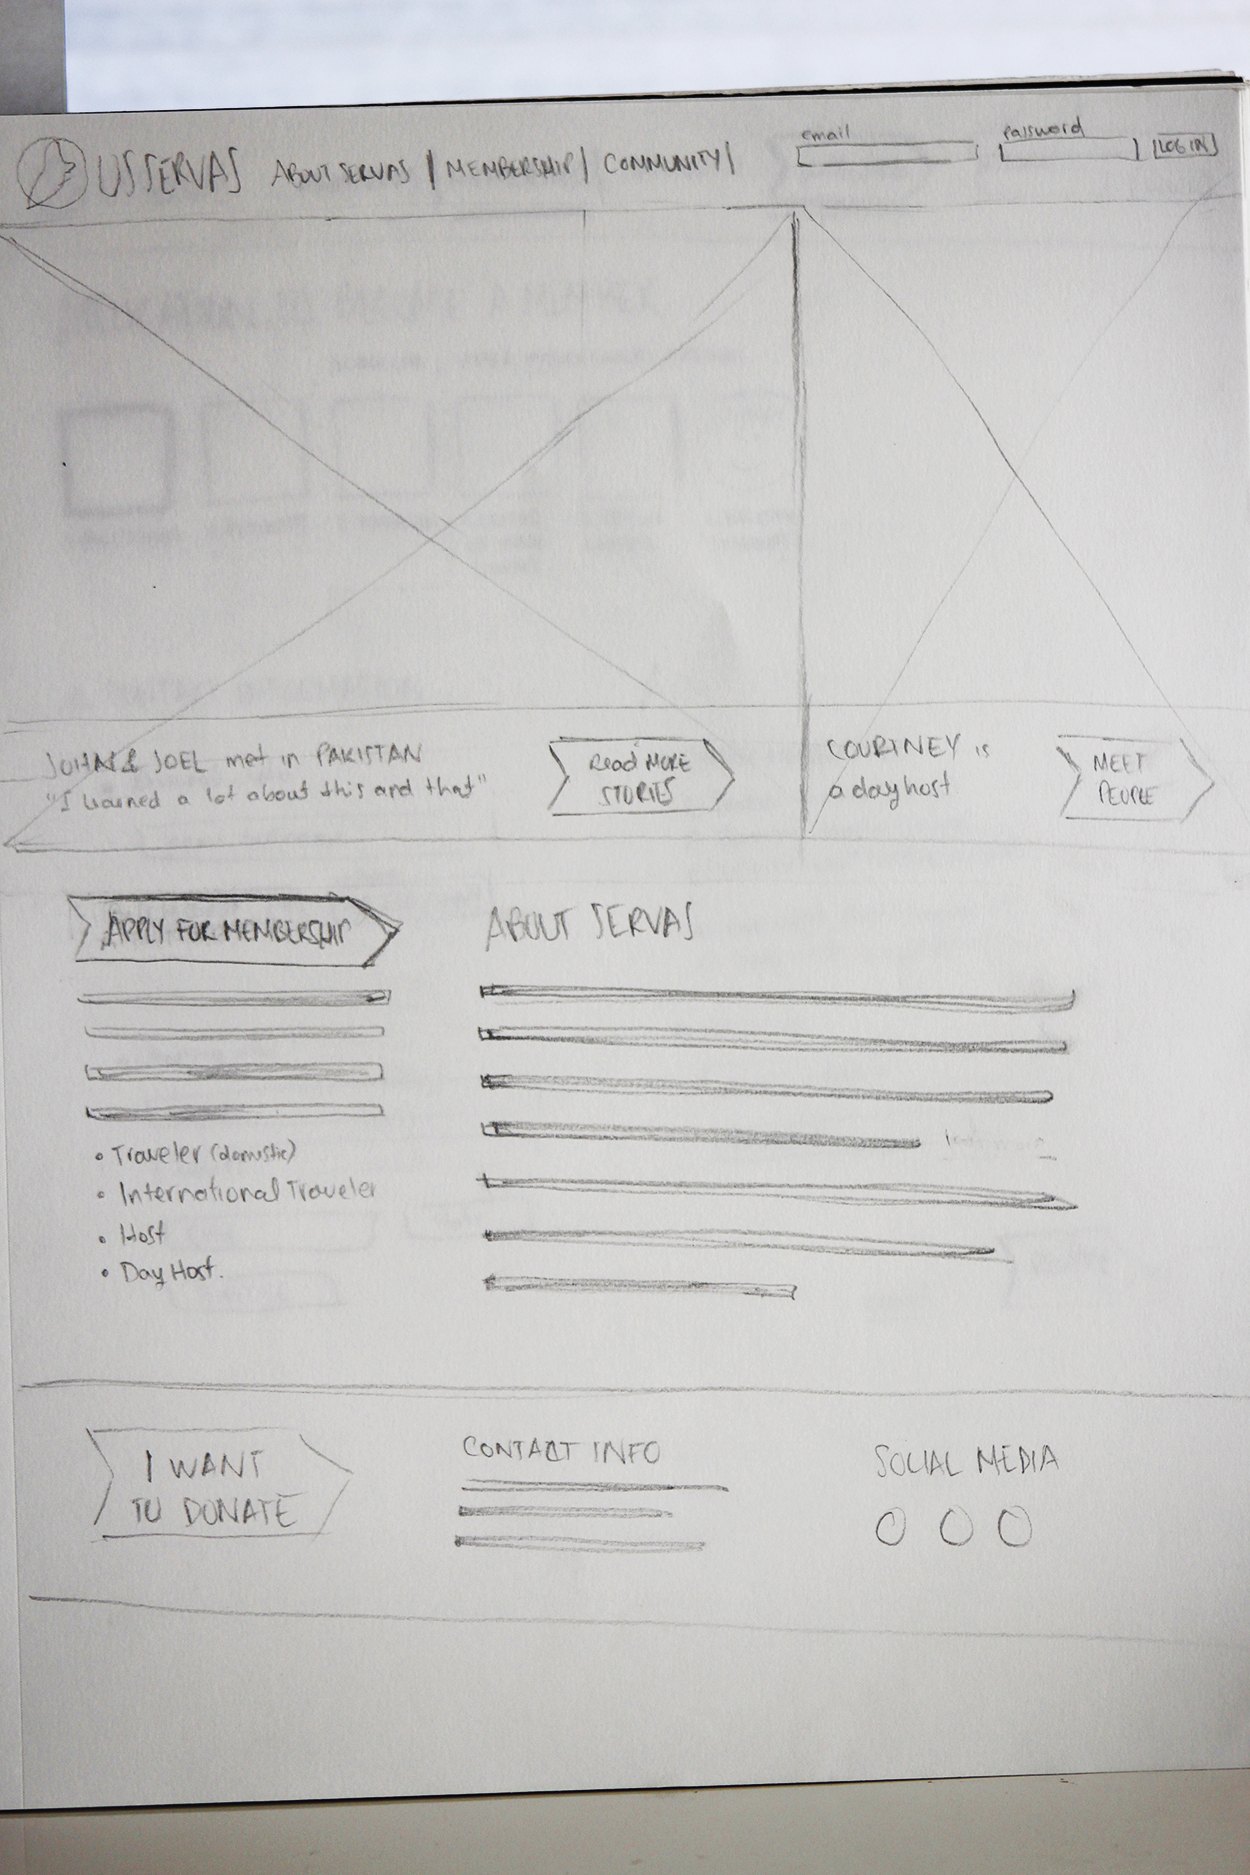 email password
US SERVAS ABOUT SERVAS | MEMBERSHIP | COMMUNITY | LOG IN
JOHN & JOEL met in PAKISTAN
"I learned a lot about this and that"
Read MORE
STORIES
COURTNEY is
a day host
MEET
PEOPLE
APPLY FOR MEMBERSHIP
• Traveler (domestic)
• International Traveler
• Host
• Day Host.
ABOUT SERVAS
I WANT
TO DONATE
CONTACT INFO
SOCIAL MEDIA